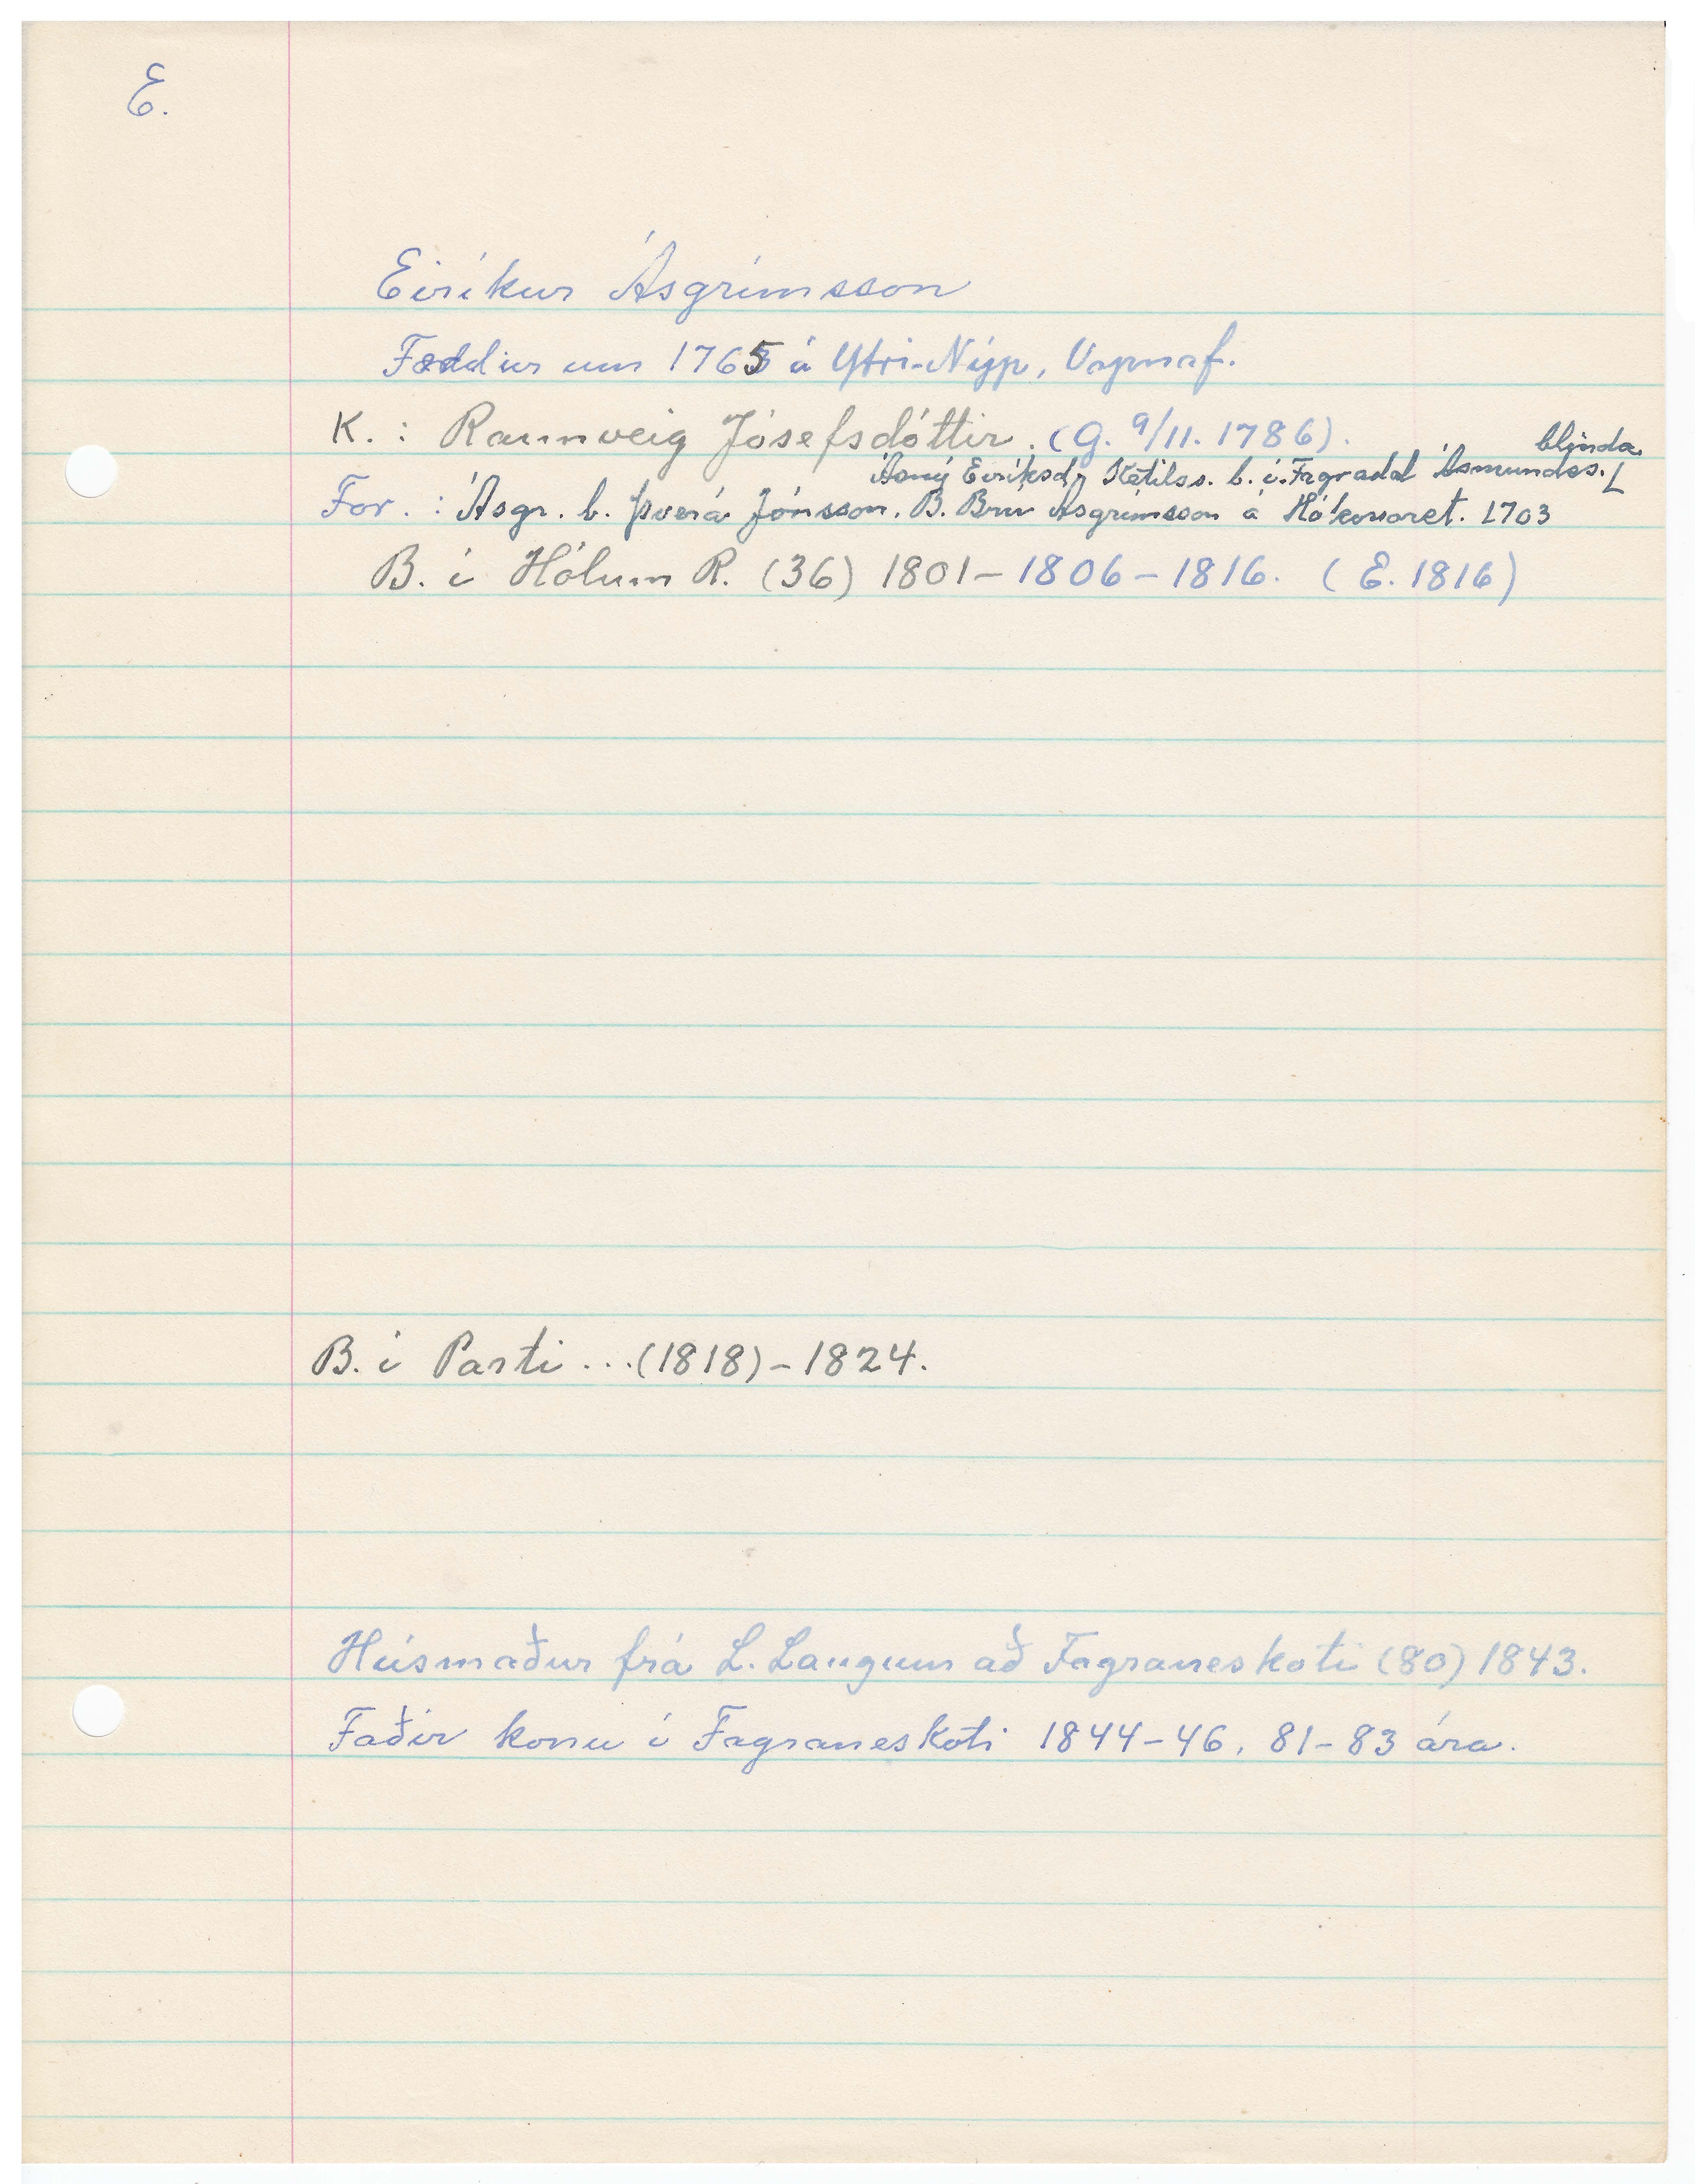 E.
Eiríkur Ásgrímsson
Fæddur um 1765 á Ytri-Nýp, Vopnaf.
K.: Rannveig Jósefsdóttir. (G. 9/11. 1786).
blinda
Ásný Eiríksd. Ketilss. b. í Fagradal Ásmundss.
For.: Ásgr. b. Þverá Jónsson. B. Brú Ásgrímsson á Hákonaret. 1703
B. í Hólum R. (36) 1801-1806-1816. (E. 1816)
B. í Parti...(1818)-1824.
Húsmaður frá L. Laugum að Fagraneskoti (80) 1843.
Faðir konu í Fagraneskoti 1844-46, 81-83 ára.